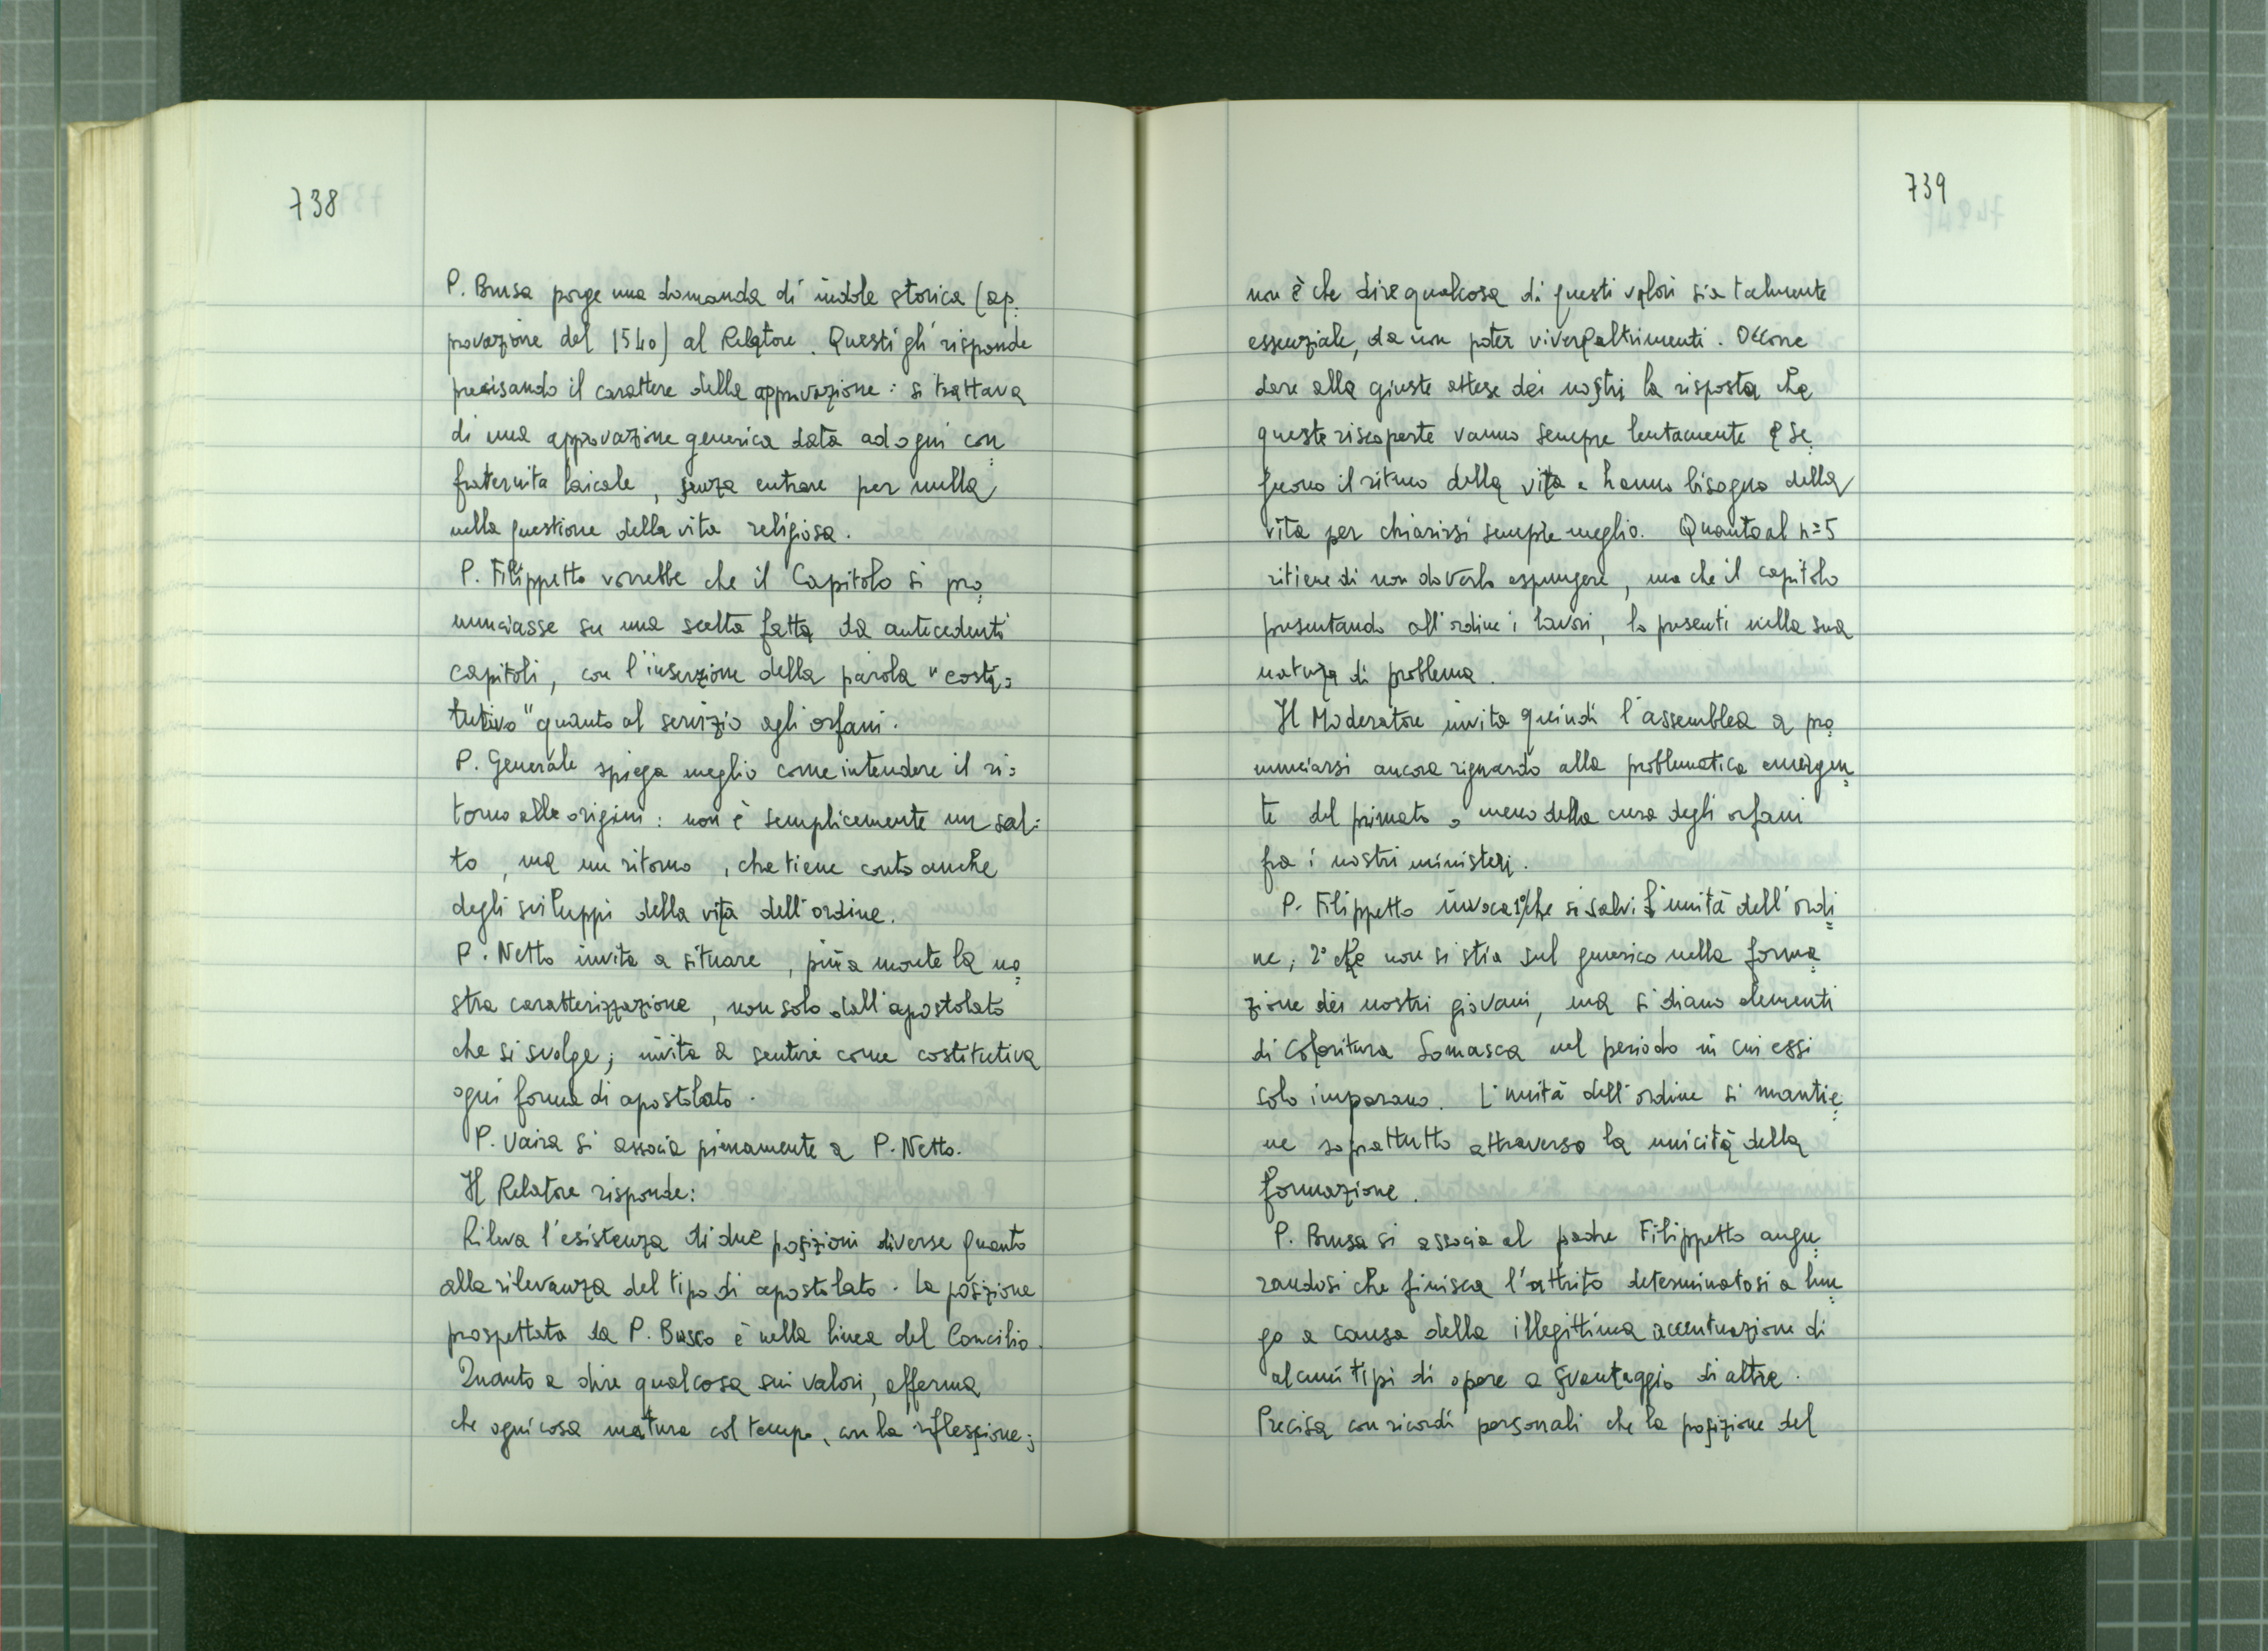 738
P. Brusa porge una domanda di indole storica (ap=
provazione del 1540) al Relatore. Questi gli risponde
precisando il carattere della approvazione: si trattava
di una approvazione generica data ad ogni con=
fraternita laicale, senza entrare per nulla
nella questione della vita religiosa.
P. Filippetto vorrebbe che il Capitolo si pro=
nunciasse su una scelta fatta da antecedenti
capitoli, con l'inserzione della parola "costi=
tutivo" quanto al servizio agli orfani.
P. Generale spiega meglio come intendere il ri=
torno alle origini: non è semplicemente un sal=
to, ma un ritorno, che tiene conto anche
degli sviluppi della vita dell'ordine.
P. Netto invita a situare, più a monte la no=
stra caratterizzazione, non solo dall'apostolato
che si svolge; invita a sentire come costitutiva
ogni forma di apostolato.
P. Vaira si associa pienamente a P. Netto.
Il Relatore risponde:
Rileva l'esistenza di due posizioni diverse quanto
alla rilevanza del tipo di apostolato. La posizione
prospettata da P. Busco è nella linea del Concilio.
Quanto a dire qualcosa sui valori, afferma
che ogni cosa matura col tempo, con la riflessione;
739
non è che dire qualcosa di questi valori sia talmente
essenziale, da non poter vivere altrimenti. Occorre
dare alla giuste attese dei nostri la risposta che
queste riscoperte vanno sempre lentamente e se=
guono il ritmo della vita e hanno bisogno della
vita per chiarirsi sempre meglio. Quanto al n=5
ritiene di non doverlo espungere, ma che il capitolo
presentando all'ordine i lavori, lo presenti nella sua
natura di problema.
Il Moderatore invita quindi l'assemblea a pro=
nunciarsi ancora riguardo alla problematica emergen=
te del primato o meno della cura degli orfani
fra i nostri ministeri.
P. Filippetto invoca 1° che si salvi l'unità dell'ordi=
ne; 2° che non si stia sul generico nella forma=
zione dei nostri giovani, ma si diano elementi
di coloritura Somasca nel periodo in cui essi
solo imparano. L'unità dell'ordine si mantie=
ne soprattutto attraverso la unicità della
formazione.
P. Brusa si associa al padre Filippetto augu=
randosi che finisca l'attrito determinatosi a lun=
go a causa della illegittima accentuazione di
alcuni tipi di opere a svantaggio di altre.
Precisa con ricordi personali che la posizione del